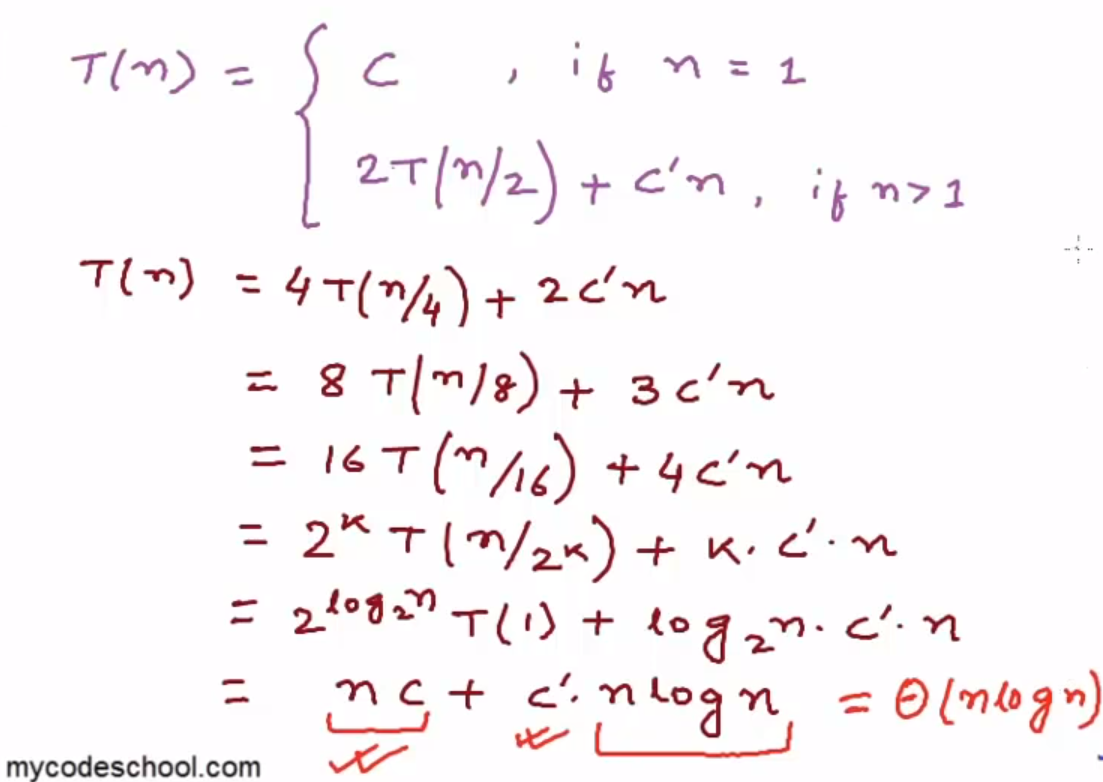 T(n) = { C , if n = 1
2T(n/2) + C'n, if n>1
T(n) = 4T(n/4) + 2C'n
= 8 T(n/8) + 3C'n
= 16T(n/16) + 4C'n
= 2^k T(n/2^k) + k. C'. n
= 2^log₂n T(1) + log₂n. C'. n
= nC + C'. n log n = Θ(nlogn)
mycodeschool.com